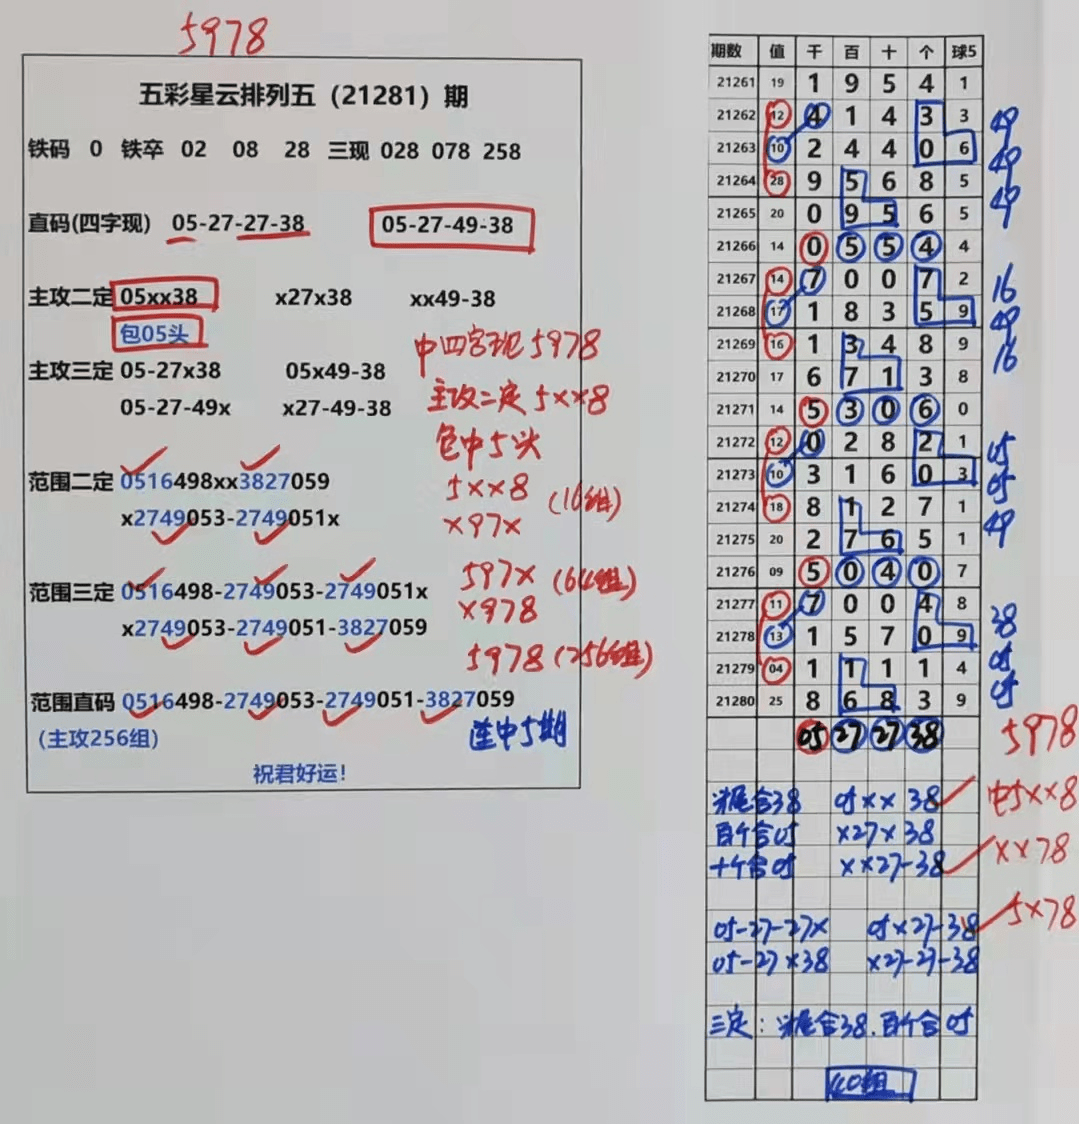 5978
五彩星云排列五（21281）期
铁码 0 铁卒 02 08 28 三现 028 078 258
直码(四字现) 05-27-27-38 05-27-49-38
主攻二定 05xx38 x27x38 xx49-38
包05头
中四字现5978
主攻三定 05-27x38 05x49-38
主攻二定5xx8
05-27-49x x27-49-38
包中5头
范围二定 0516498xx3827059
5xx8 (16组)
x2749053-2749051x
x97x
范围三定 0516498-2749053-2749051x
597x (64组)
x2749053-2749051-3827059
x978
5978 (256组)
范围直码 0516498-2749053-2749051-3827059
(主攻256组)
连中5期
祝君好运！
期数 值 千 百 十 个 球5
21261 19 1 9 5 4 1
21262 12 4 1 4 3 3 49
21263 10 2 4 4 0 6 49
21264 28 9 5 6 8 5 49
21265 20 0 9 5 6 5
21266 14 0 5 5 4 4
21267 14 7 0 0 7 2 16
21268 17 1 8 3 5 9 49
21269 16 1 3 4 8 9 16
21270 17 6 7 1 3 8
21271 14 5 3 0 6 0
21272 12 0 2 8 2 1 05
21273 10 3 1 6 0 3 05
21274 18 8 1 2 7 1 49
21275 20 2 7 6 5 1
21276 09 5 0 4 0 7
21277 11 7 0 0 4 8 38
21278 13 1 5 7 0 9 05
21279 04 1 1 1 1 4 05
21280 25 8 6 8 3 9
05 27 27 38 5978
尾合38 05xx38 中5xx8
百个合05 x27x38
十个合05 xx27-38 xx78
05-27-27x 05x27-38 5x78
05-27x38 x27-27-38
三定：尾合38.百个合05
40组